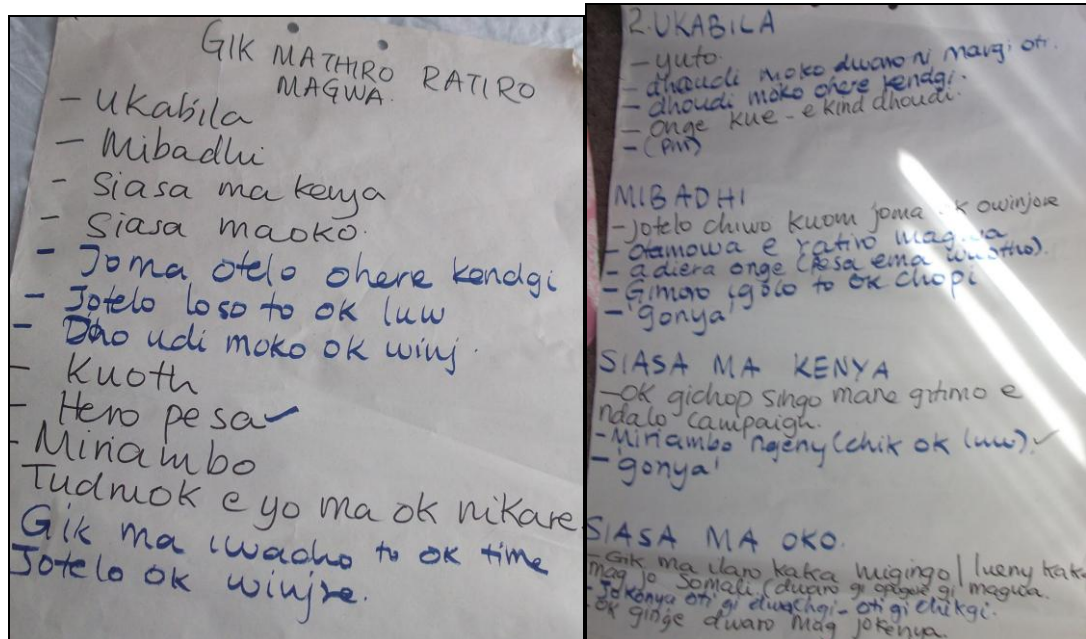 GIK MATHIRO RATIRO
MAGWA.
- Ukabila
- Mibadhi
- Siasa ma kenya
- Siasa maoko.
- Joma otelo ohere kendgi
- Jotelo loso to ok luw
- Dho udi moko ok winj.
- Kuoth
- Hero pesa ✓
- Miriambo
Tudruok e yo ma ok nikare
Gik ma iwacho to ok time
Jotelo ok winjre.
2. UKABILA
- yuto.
- dhoudi moko dwaro ni margi oti.
- dhoudi moko ohere kendgi.
- Onge kue - e kind dhoudi.
- (PIN)
MIBADHI
- Jotelo chiwo kuom joma ok owinjore
- Otamowa e ratiro magwa
- adiera onge (pesa ema wuotho).
- Gimoro igolo to ok chopi
- 'gonya'
SIASA MA KENYA
- OK gichop singo mane gitimo e
ndalo campaign.
- Miriambo ngeny (chik ok luw). ✓
- 'gonya'
SIASA MA OKO.
- Gik ma laro kaka migingo / lueny kaka
mag jo Somali. (dwaro gi magwa.
- Jokonya oti gi diwachgi - oti gi chikgi.
- ok ginge dwaro mag jokenya.